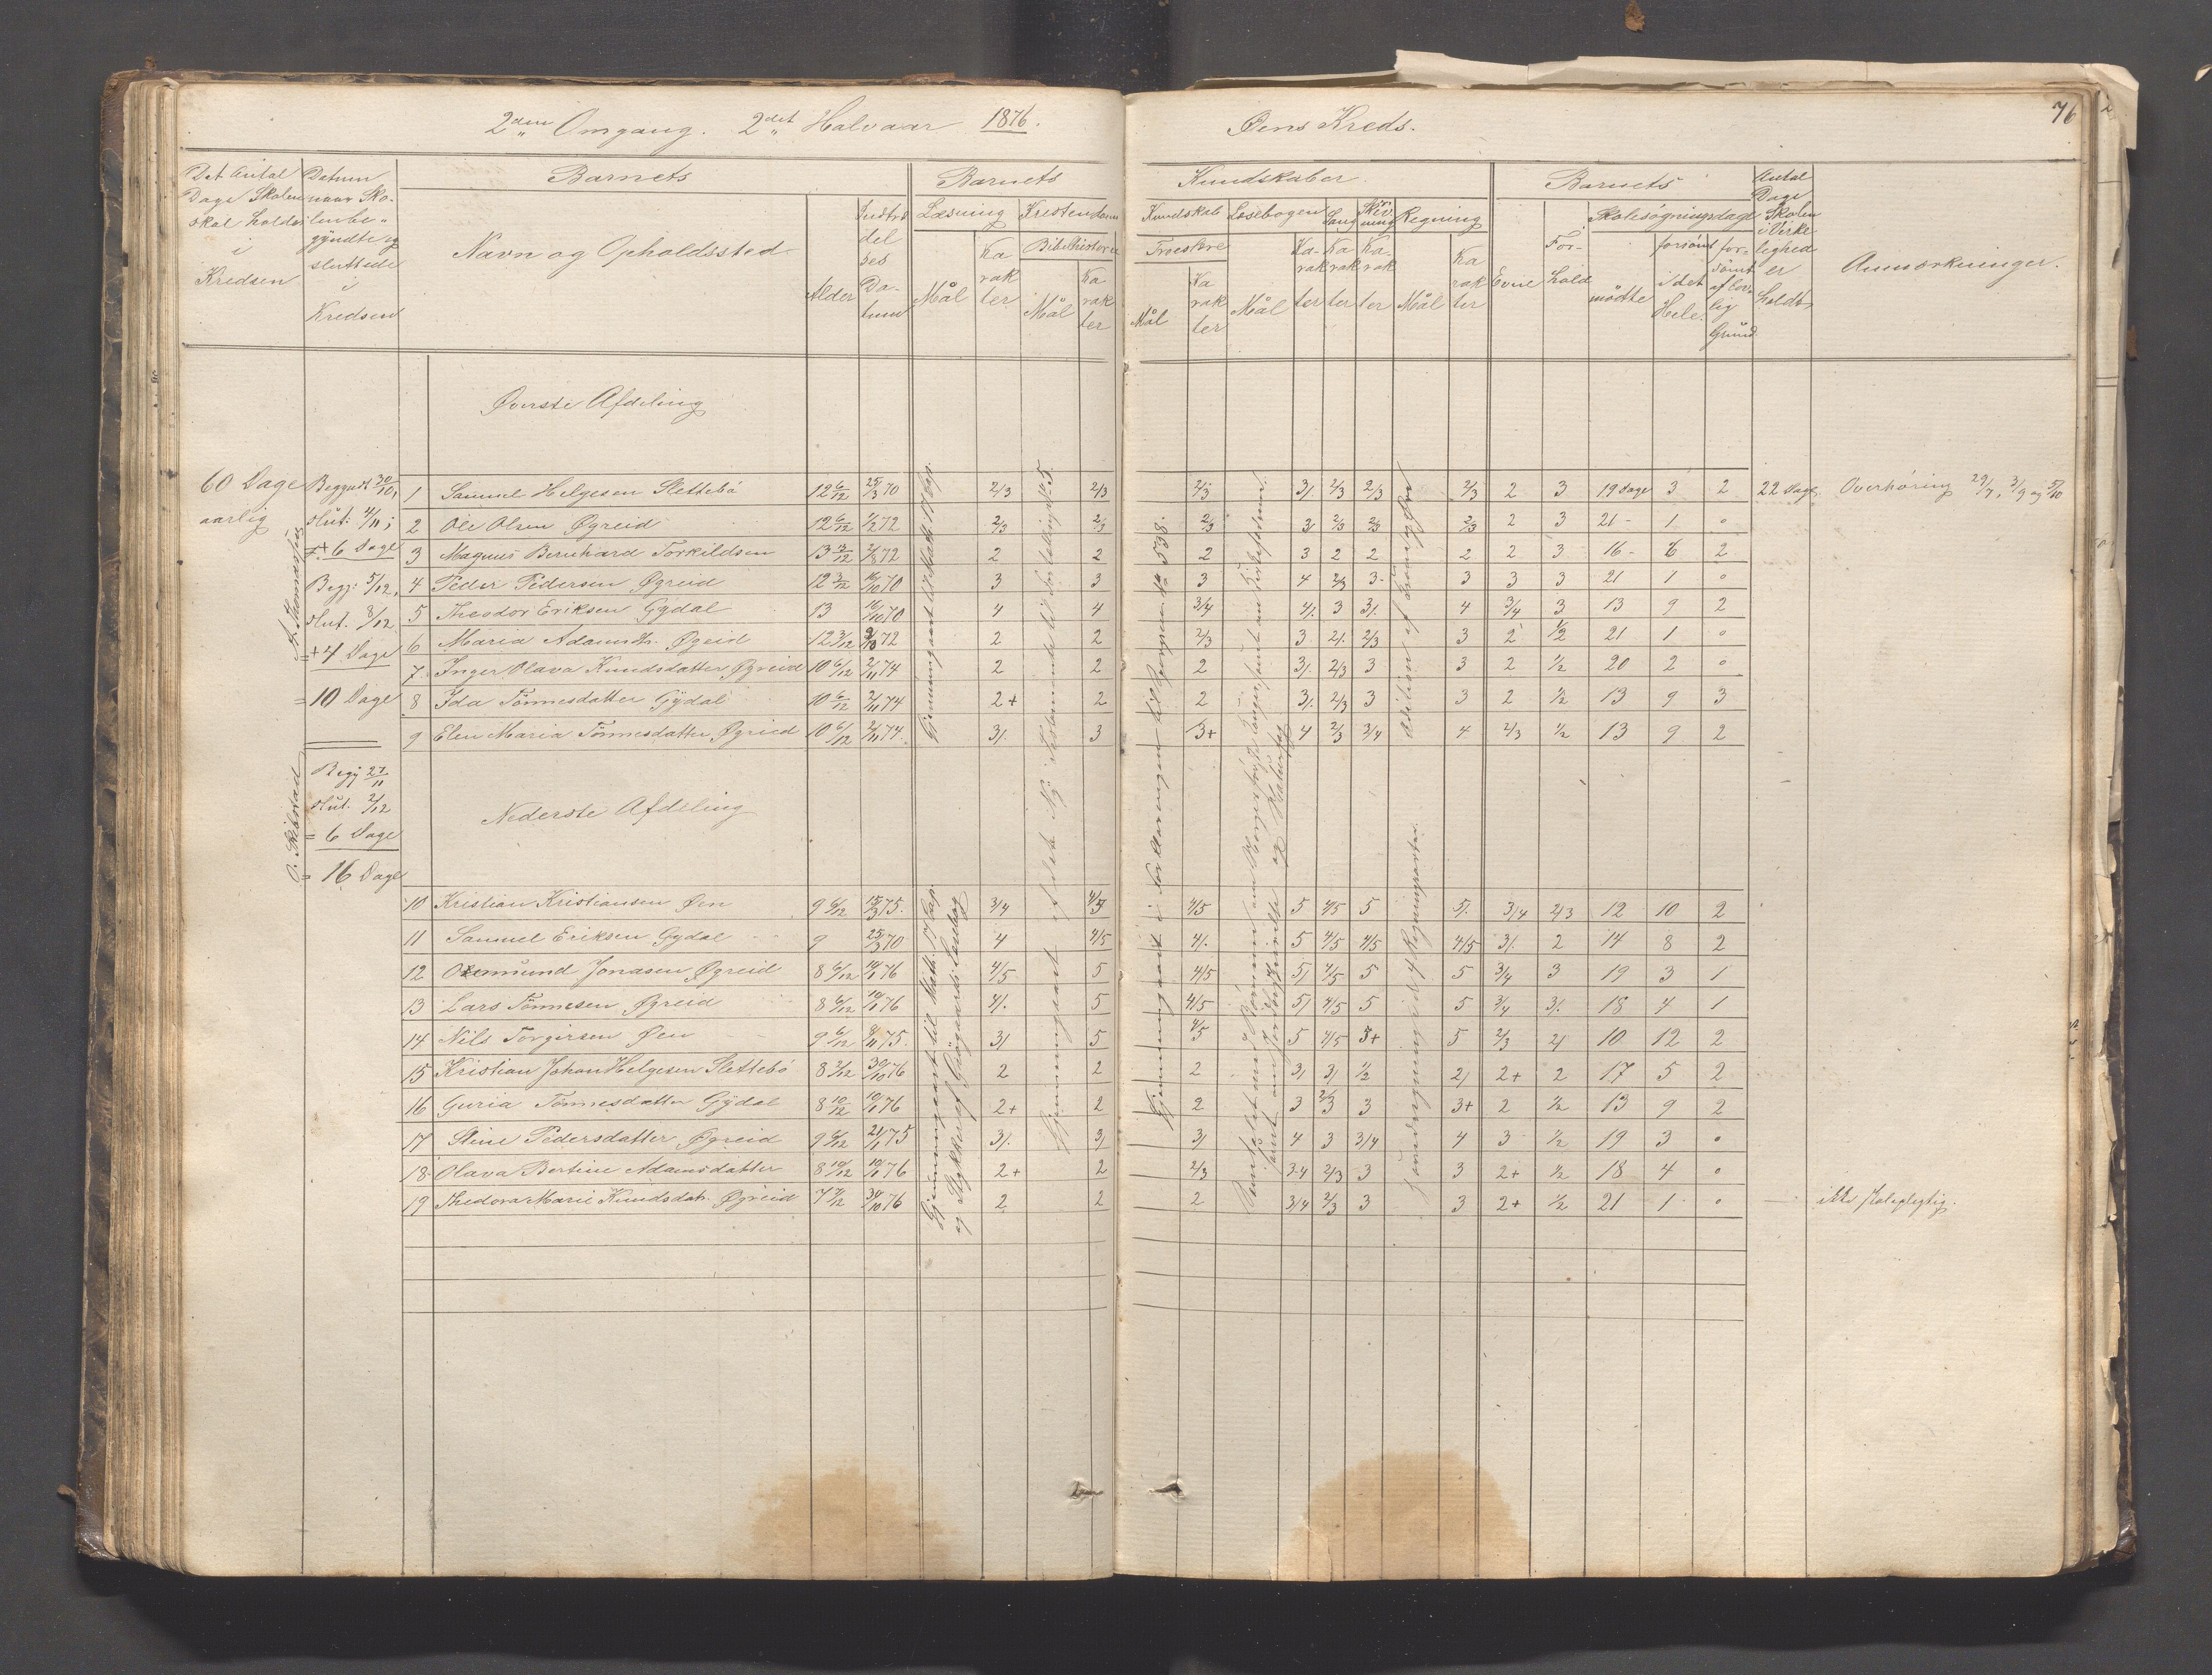 2den Omgang. 2det Halvaar 1876.
Øens Kreds.
76
Det Antal Dage Skolen skal holdes i Kredsen
Datum naar Skolen begyndte og sluttede i Kredsen
Barnets
Navn og Opholdssted
Alder
Indtrædelses Datum
Barnets
Læsning
Mål
Karakter
Kristendom
Bibelhistorie
Mål
Karakter
Kundskaber
Kundskab
Troeslære
Mål
Karakter
Læsebogen
Mål
Karakter
Sang
Karakter
Skrivning
Karakter
Regning
Mål
Karakter
Barnets
Evne
Forhold
Skolesøgningsdage
mødte
forsømt i det Hele
forsømt af lovlig Grund
Antal Dage Skolen i Virkelighed er holdt
Anmærkninger.
Øverste Afdeling
60 Dage aarlig
Begyndt 30/10,
slut. 4/11;
6 Dage
Begy: 5/12,
slut. 8/12
4 Dage
= 10 Dage
Begy 27/11
slut. 2/12
= 6 Dage
= 16 Dage
O. Skibstad
1 Samuel Helgesen Slettebö 12 6/12 25/3 70 2/3 2/3 2/3 3/ 2/3 2/3 2/3 2 3 19 Dage 3 2 22 Dage Overhøring 29/7, 3/9 og 5/10
2 Ole Olsen Øgreid 12 6/12 1/2 72 2/3 2/3 2/3 3/ 2/3 2/3 2/3 2 3 21 - 1 0
3 Magnus Bernhard Torkildsen 13 2/8 72 2 2 2 3 2 2 2 2 3 16 - 6 2
4 Peder Pedersen Øgreid 12 3/12 10/10 70 3 3 3 4 2/3 3 3 3 3 21 1 0
5 Theodor Eriksen Gÿdal 13 16/10 70 4 4 3/4 4/. 3 3/. 4 3/4 3 13 9 2
6 Maria Adamsdtr. Øgreid 12 3/12 72 2 2 2/3 3 2/. 2/3 3 2 1/2 21 1 0
7 Inger Olava Knudsdatter Øgreid 10 6/12 2/11 74 2 2 2 3/. 2/3 3 3 2 1/2 20 2 0
8 Ida Tönnesdatter Gÿdal 10 6/12 2/11 74 2+ 2 2 3/. 2/3 3 3 2 1/2 13 9 3
9 Elen Maria Tönnesdatter Øgried 10 6/12 2/11 74. 3/. 3 3+ 4 2/3 3/4 4 2/3 1/2 13 9 2
Nederste Afdeling
10 Kristian Kristiansen Øen 9 6/12 75. 3/4 4/5 4/5 5 4/5 5 5/. 3/4 2/3 12 10 2
11 Samuel Eriksen Gydal 9 25/3 70 4 4/5 4/. 5 4/5 4/5 4/5 3/. 2 14 8 2
12 Jonasen Øgreid 8 6/12 10/1 76 4/5 5 4/5 5/ 4/5 5 5 3/4 3 19 3 1
13 Lars Tönnesen Øgreid 8 6/12 10/1 76 4/. 5 4/5 5/ 4/5 5 5 3/4 3/. 18 4 1
14 Nils Torgersen Øen 9 6/12 8/11 75. 3/ 5 4/5 5 4/5 3+ 5 2/3 2/ 10 12 2
15 Kristian Johan Helgesen Slettebö 8 2/12 30/10 76 2 2 2 3/ 3/ 1/2 2/ 2+ 2 17 5 2
16 Guria Tönnesdatter Gÿdal 8 10/12 10/1 76 2+ 2 2 3 2/3 3 3+ 2 1/2 13 9 2
17 Stine Pedersdatter Øgreid 9 6/12 21/1 75 3/. 3/ 3/ 4 3 3/4 4 3 1/2 19 3 0
18 Olava Bertine Adamsdatter 8 10/12 10/1 76 2+ 2 2/3 3-4 2/3 3 3 2+ 1/2 18 4 0
19 Thedora Marie Knudsdatr. Øgreid 7 7/12 30/10 76 2 2 2 3/4 2/3 3 3 2+ 1/2 21 1 0 ikke skolepligtig.